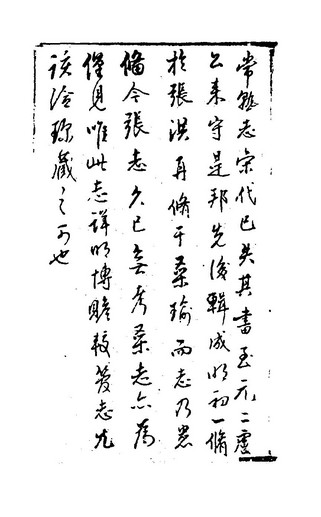 常熟志宋代已失其書至元二盧
公來守是邦先後輯成明初一脩
於張洪再脩于桑瑜而志乃悉
備今張志久已無考桑志亦為
僅見唯此志詳明博贍較志尤
該洽珍藏之可也